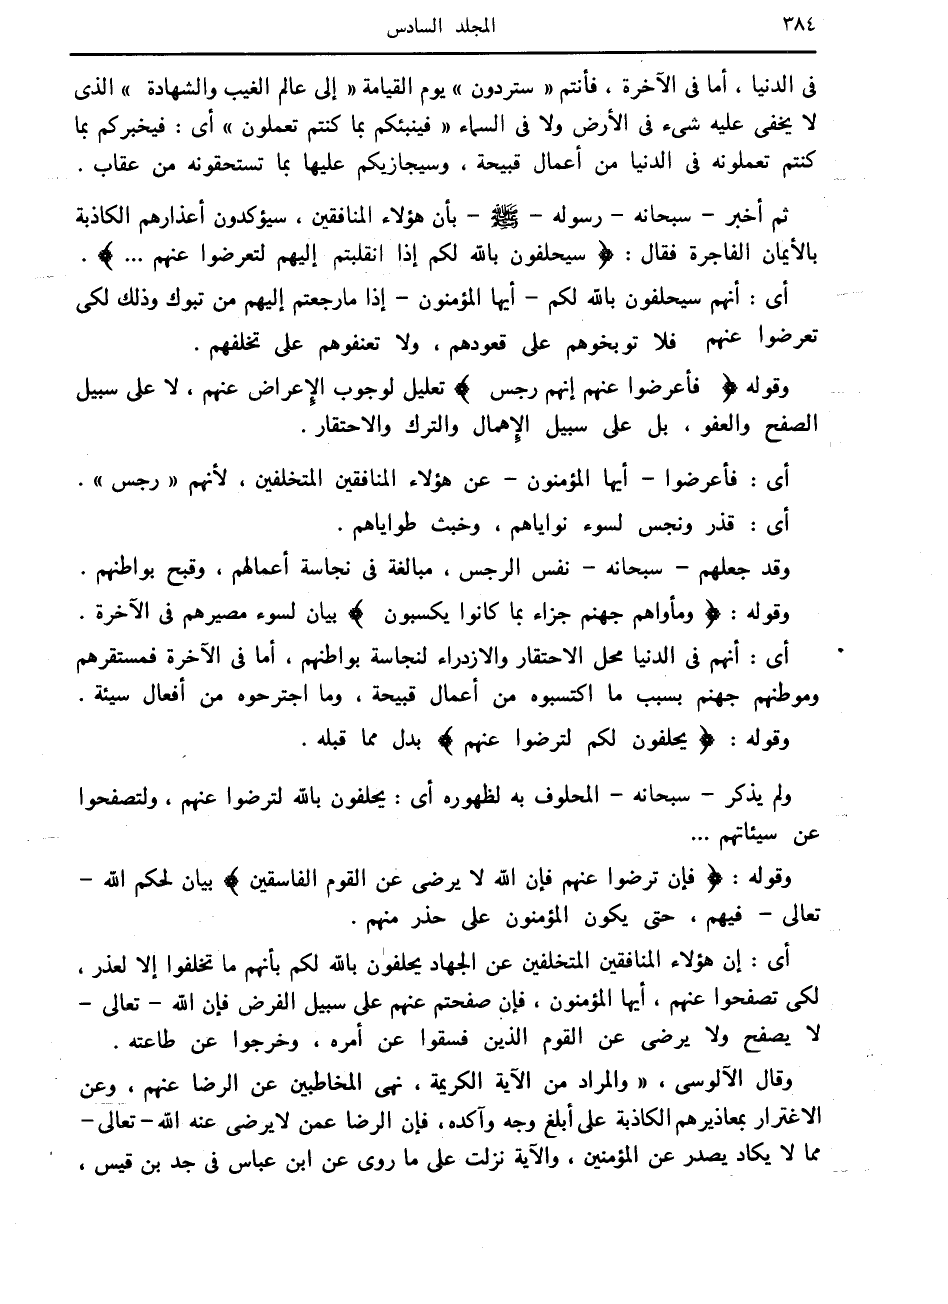 ٣٨٤
المجلد السادس
فى الدنيا ، أما فى الآخرة ، فأنتم « ستردون » يوم القيامة « إلى عالم الغيب والشهادة » الذى
لا يخفى عليه شىء فى الأرض ولا فى السماء « فينبئكم بما كنتم تعملون » أى : فيخبركم بما
كنتم تعملونه فى الدنيا من أعمال قبيحة ، وسيجازيكم عليها بما تستحقونه من عقاب .
ثم أخبر – سبحانه – رسوله – ﷺ – بأن هؤلاء المنافقين ، سيؤكدون أعذارهم الكاذبة
بالأيمان الفاجرة فقال : ﴿ سيحلفون بالله لكم إذا انقلبتم إليهم لتعرضوا عنهم ... ﴾ .
أى : أنهم سيحلفون بالله لكم – أيها المؤمنون – إذا مارجعتم إليهم من تبوك وذلك لكى
تعرضوا عنهم فلا توبخوهم على قعودهم ، ولا تعنفوهم على تخلفهم .
وقوله ﴿ فأعرضوا عنهم إنهم رجس ﴾ تعليل لوجوب الإعراض عنهم ، لا على سبيل
الصفح والعفو ، بل على سبيل الإهمال والترك والاحتقار .
أى : فأعرضوا – أيها المؤمنون – عن هؤلاء المنافقين المتخلفين ، لأنهم « رجس » .
أى : قذر ونجس لسوء نواياهم ، وخبث طواياهم .
وقد جعلهم – سبحانه – نفس الرجس ، مبالغة فى نجاسة أعمالهم ، وقبح بواطنهم .
وقوله : ﴿ ومأواهم جهنم جزاء بما كانوا يكسبون ﴾ بيان لسوء مصيرهم فى الآخرة .
أى : أنهم فى الدنيا محل الاحتقار والازدراء لنجاسة بواطنهم ، أما فى الآخرة فمستقرهم
وموطنهم جهنم بسبب ما اكتسبوه من أعمال قبيحة ، وما اجترحوه من أفعال سيئة .
وقوله : ﴿ يحلفون لكم لترضوا عنهم ﴾ بدل مما قبله .
ولم يذكر – سبحانه – المحلوف به لظهوره أى : يحلفون بالله لترضوا عنهم ، ولتصفحوا
عن سيئاتهم ...
وقوله : ﴿ فإن ترضوا عنهم فإن الله لا يرضى عن القوم الفاسقين ﴾ بيان لحكم الله –
تعالى – فيهم ، حتى يكون المؤمنون على حذر منهم .
أى : إن هؤلاء المنافقين المتخلفين عن الجهاد يحلفون بالله لكم بأنهم ما تخلفوا إلا لعذر ،
لكى تصفحوا عنهم ، أيها المؤمنون ، فإن صفحتم عنهم على سبيل الفرض فإن الله – تعالى –
لا يصفح ولا يرضى عن القوم الذين فسقوا عن أمره ، وخرجوا عن طاعته .
وقال الآلوسى ، « والمراد من الآية الكريمة ، نهى المخاطبين عن الرضا عنهم ، وعن
الاغترار بمعاذيرهم الكاذبة على أبلغ وجه وآكده، فإن الرضا عمن لايرضى عنه الله – تعالى –
مما لا يكاد يصدر عن المؤمنين ، والآية نزلت على ما روى عن ابن عباس فى جد بن قيس ،